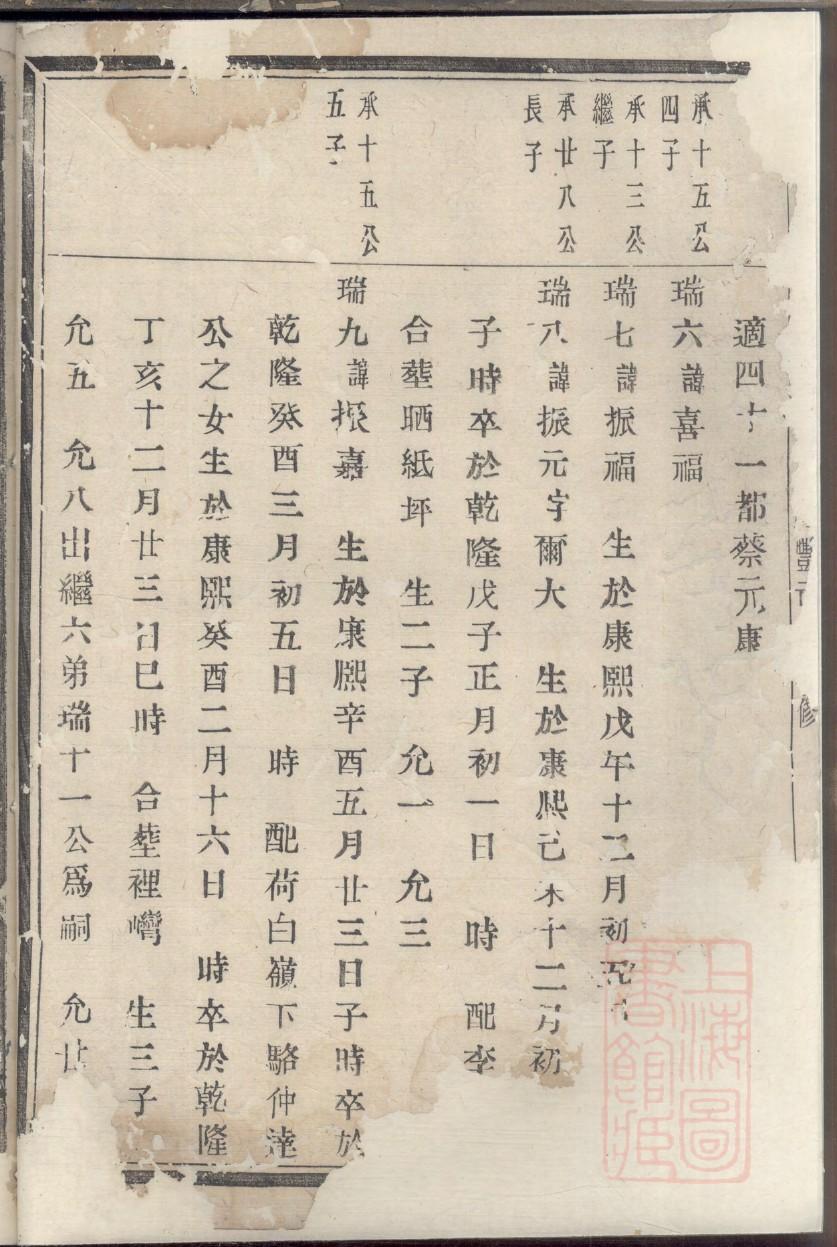 適四十一都蔡元康
承十五公
四子
瑞六諱喜福
承十三公
繼子
瑞七諱振福 生於康熙戊午十二月初
承廿八公
長子
瑞八諱振元字爾大 生於康熙己未十二月初
子時卒於乾隆戊子正月初一日 時 配李
合塟晒紙坪 生二子 允一 允三
承十五公
五子
瑞九諱振嘉 生於康熙辛酉五月廿三日子時卒於
乾隆癸酉三月初五日 時 配荷白嶺下駱仲達
公之女生於康熙癸酉二月十六日 時卒於乾隆
丁亥十二月廿三日巳時 合塟裡灣 生三子
允五 允八出繼六弟瑞十一公爲嗣 允廿
豐
修
上海圖
書館藏